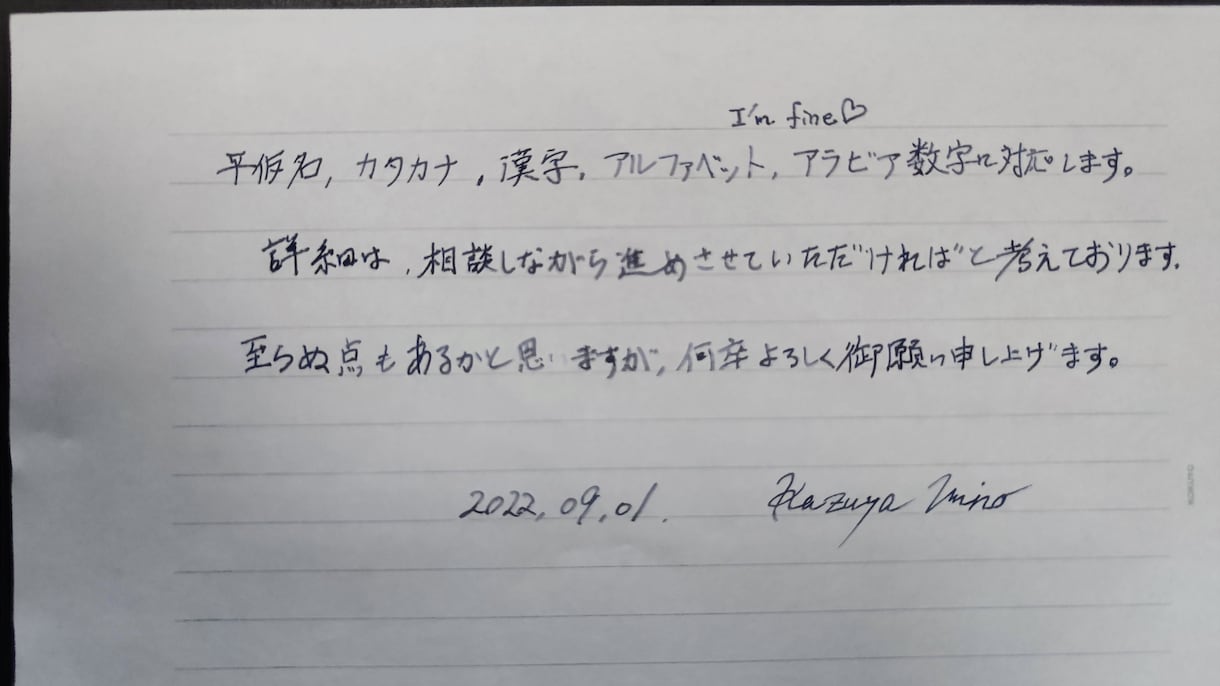 I'm fine♡
平仮名, カタカナ, 漢字, アルファベット, アラビア数字に対応します。
詳細は, 相談しながら進めさせていただければと考えております.
至らぬ点もあるかと思いますが, 何卒よろしく御願い申し上げます。
2022.09.01. Kazuya